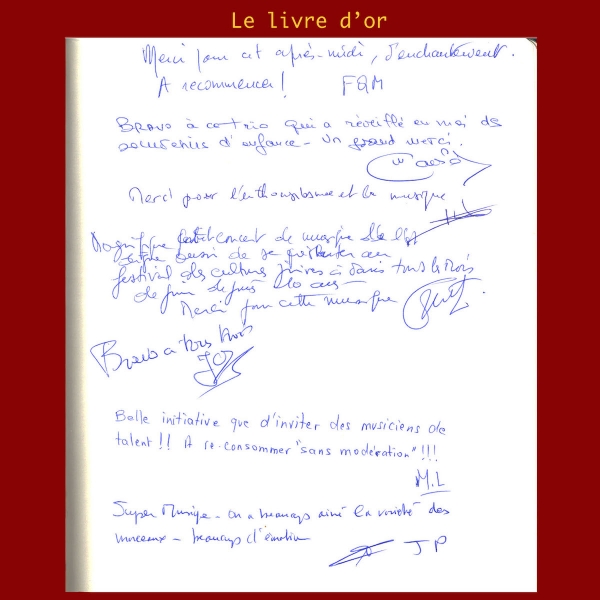 Le livre d'or
Merci pour cet après-midi, d'enchantement.
A recommencer! FQM
BRAVO à ce trio qui a réveillé en moi des
souvenirs d'enfance - Un grand merci.
Merci pour l'enthousiasme et la musique
Magnifique petit concert de musique de l'Est
digne aussi de se présenter au
festival des cultures juives à Paris tous les mois
de juin depuis 10 ans -
Merci pour cette musique
Bravo a tous trois
Belle initiative que d'inviter des musiciens de
talent!! A re-consommer "sans modération"!!!
M.L
Super Musique - On a beaucoup aimé la variété des
morceaux - beaucoup d'émotion
JP